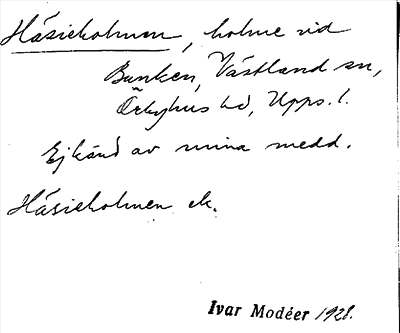 Håsieholmen, holme vid
Bunken, Västland sn,
Örbyhus hd, Upps. l.
Ej känd av mina medd.
Håsieholmen ek.
Ivar Modéer 1928.